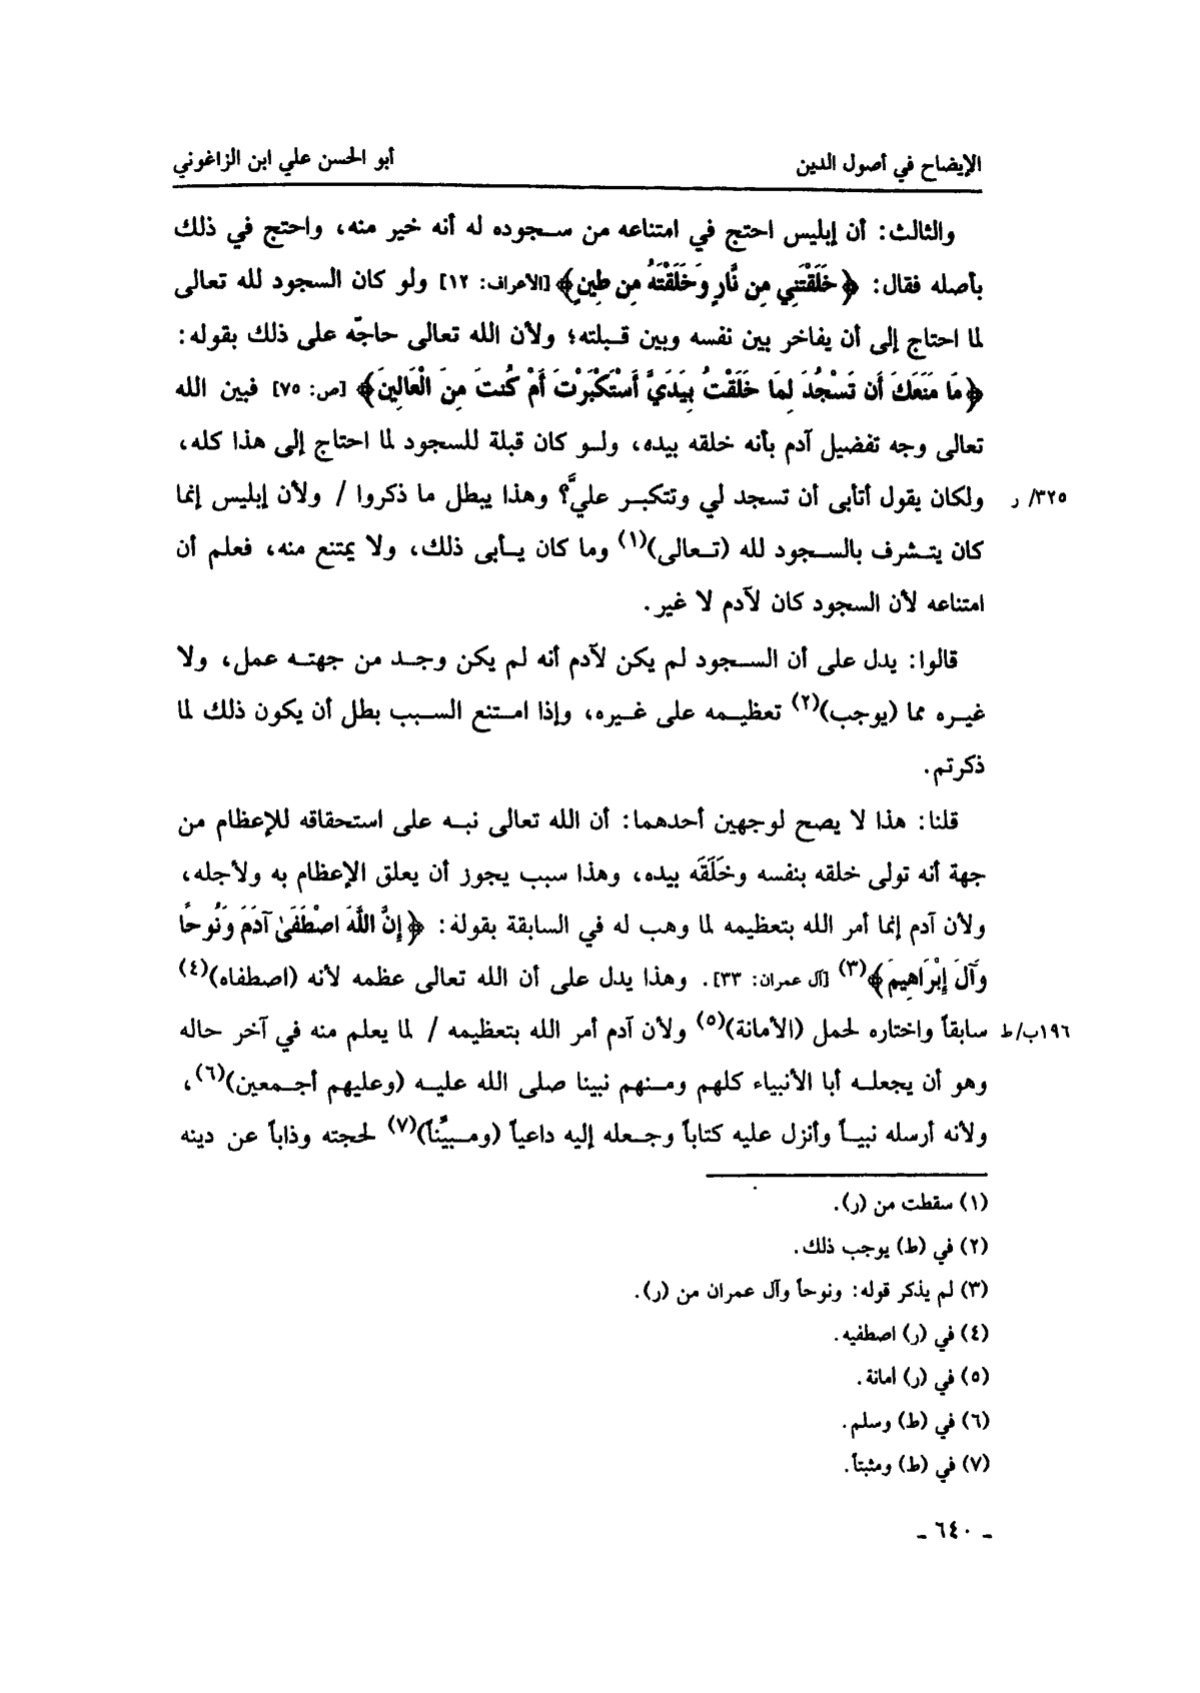 الإيضاح في أصول الدين
أبو الحسن علي ابن الزاغوني
والثالث: أن إبليس احتج في امتناعه من سجوده له أنه خير منه، واحتج في ذلك
بأصله فقال: ﴿خَلَقْتَنِي مِن نَّارٍ وَخَلَقْتَهُ مِن طِينٍ﴾ [الأعراف: ١٢] ولو كان السجود لله تعالى
لما احتاج إلى أن يفاخر بين نفسه وبين قبلته؛ ولأن الله تعالى حاجّه على ذلك بقوله:
﴿مَا مَنَعَكَ أَن تَسْجُدَ لِمَا خَلَقْتُ بِيَدَيَّ أَسْتَكْبَرْتَ أَمْ كُنتَ مِنَ الْعَالِينَ﴾ [ص: ٧٥] فبين الله
تعالى وجه تفضيل آدم بأنه خلقه بيده، ولو كان قبلة للسجود لما احتاج إلى هذا كله،
ولكان يقول أتأبى أن تسجد لي وتتكبر عليَّ؟ وهذا يبطل ما ذكروا / ولأن إبليس إنما
٣٢٥/ ر
كان يتشرف بالسجود لله (تعالى)(١) وما كان يأبى ذلك، ولا يمتنع منه، فعلم أن
امتناعه لأن السجود كان لآدم لا غير.
قالوا: يدل على أن السجود لم يكن لآدم أنه لم يكن وجد من جهته عمل، ولا
غيره مما (يوجب)(٢) تعظيمه على غيره، وإذا امتنع السبب بطل أن يكون ذلك لما
ذكرتم.
قلنا: هذا لا يصح لوجهين أحدهما: أن الله تعالى نبه على استحقاقه للإعظام من
جهة أنه تولى خلقه بنفسه وخَلَقَه بيده، وهذا سبب يجوز أن يعلق الإعظام به ولأجله،
ولأن آدم إنما أمر الله بتعظيمه لما وهب له في السابقة بقوله: ﴿إِنَّ اللَّهَ اصْطَفَىٰ آدَمَ وَنُوحًا
وَآلَ إِبْرَاهِيمَ﴾(٣) [آل عمران: ٣٣]. وهذا يدل على أن الله تعالى عظمه لأنه (اصطفاه)(٤)
سابقاً واختاره لحمل (الأمانة)(٥) ولأن آدم أمر الله بتعظيمه / لما يعلم منه في آخر حاله
١٩٦ب/ط
وهو أن يجعله أبا الأنبياء كلهم ومنهم نبينا صلى الله عليه (وعليهم أجمعين)(٦)،
ولأنه أرسله نبياً وأنزل عليه كتاباً وجعله إليه داعياً (ومبيِّناً)(٧) لحجته وذاباً عن دينه
(١) سقطت من (ر).
(٢) في (ط) يوجب ذلك.
(٣) لم يذكر قوله: ونوحاً وآل عمران من (ر).
(٤) في (ر) اصطفيه.
(٥) في (ر) أمانة.
(٦) في (ط) وسلم.
(٧) في (ط) ومثبتاً.
- ٦٤٠ -